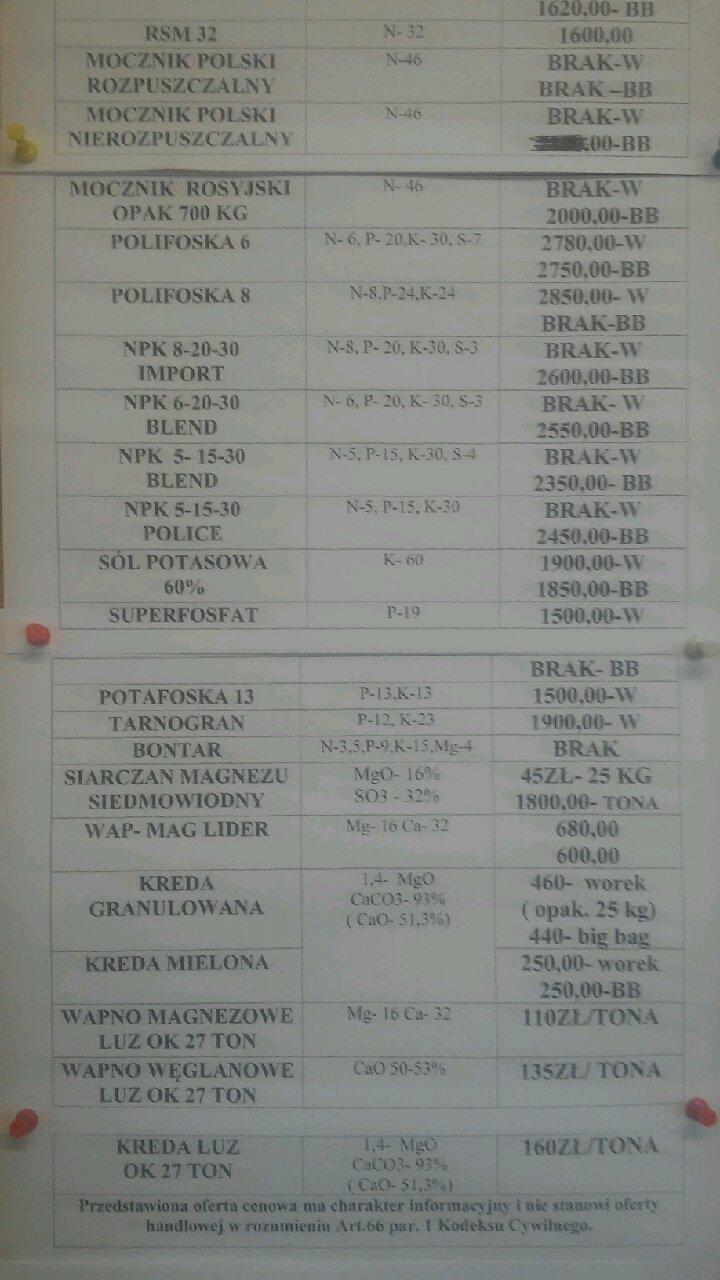 1620,00- BB
RSM 32 N- 32 1600,00
MOCZNIK POLSKI N-46 BRAK-W
ROZPUSZCZALNY BRAK –BB
MOCZNIK POLSKI N-46 BRAK-W
NIEROZPUSZCZALNY ,00-BB
MOCZNIK ROSYJSKI N- 46 BRAK-W
OPAK 700 KG 2000,00-BB
POLIFOSKA 6 N- 6, P- 20,K- 30, S-7 2780,00-W
2750,00-BB
POLIFOSKA 8 N-8,P-24,K-24 2850,00- W
BRAK-BB
NPK 8-20-30 N-8, P- 20, K-30, S-3 BRAK-W
IMPORT 2600,00-BB
NPK 6-20-30 N- 6, P- 20, K- 30, S-3 BRAK- W
BLEND 2550,00-BB
NPK 5- 15-30 N-5, P-15, K-30, S-4 BRAK-W
BLEND 2350,00- BB
NPK 5-15-30 N-5, P-15, K-30 BRAK-W
POLICE 2450,00-BB
SÓL POTASOWA K- 60 1900,00-W
60% 1850,00-BB
SUPERFOSFAT P-19 1500,00-W
BRAK- BB
POTAFOSKA 13 P-13,K-13 1500,00-W
TARNOGRAN P-12, K-23 1900,00- W
BONTAR N-3,5,P-9,K-15,Mg-4 BRAK
SIARCZAN MAGNEZU MgO- 16% 45ZŁ- 25 KG
SIEDMOWIODNY SO3 - 32% 1800,00- TONA
WAP- MAG LIDER Mg- 16 Ca- 32 680,00
600,00
KREDA 1,4- MgO 460- worek
GRANULOWANA CaCO3- 93% ( opak. 25 kg)
( CaO- 51,3%) 440- big bag
KREDA MIELONA 250,00- worek
250,00-BB
WAPNO MAGNEZOWE Mg- 16 Ca- 32 110ZŁ/TONA
LUZ OK 27 TON
WAPNO WĘGLANOWE CaO 50-53% 135ZŁ/ TONA
LUZ OK 27 TON
KREDA LUZ 1,4- MgO 160ZŁ/TONA
OK 27 TON CaCO3- 93%
( CaO- 51,3%)
Przedstawiona oferta cenowa ma charakter informacyjny i nie stanowi oferty
handlowej w rozumieniu Art.66 par. 1 Kodeksu Cywilnego.